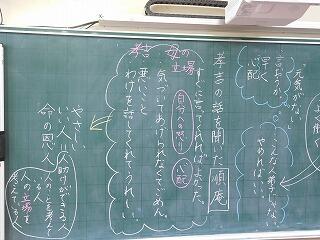 元気がない
言おうか
早く
心配
よく働く
こんな弟子いない
やめれば…
孝吉の話を聞いた順庵
考吉 母の
立場
すぐに言ってくれればよかった。
自分への怒り 心配
気づいてあげられなくてごめん。
悪いこと
わけを話してくれてうれしい。
やさしい
いい人＝人助けができる人
命の恩人
人のことを考えている
人の立場を
考えている人